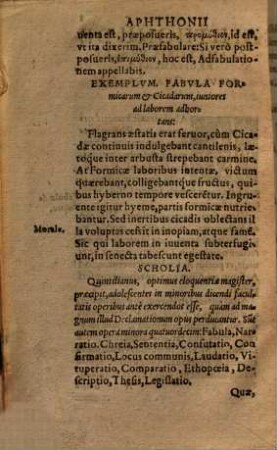 APHTHONII
uenta est, præposueris, προμύθιον, id est,
ut ita dixerim, Præfabulare: Si verò post-
posueris, ἐπιμύθιον, hoc est, Adfabulatio-
nem appellabis.
EXEMPLVM FABVLA FOR-
micarum & Cicadarum, iuniores
ad laborem adhor
tans:
Flagrans æstatis erat feruor, cùm Cica-
dæ continuis indulgebant cantilenis, læ-
tóque inter arbusta strepebant carmine.
At Formicæ laboribus intentæ, victum
quærebant, colligebantq́ue fructus, qui-
bus hyberno tempore vescerētur. Ingru-
ente igitur hyeme, partis formicæ nutrie-
bantur. Sed inertibus cicadis oblectans il
Morale. la voluptas cessit in inopiam, atque famē.
Sic qui laborem in iuuenta subterfugi-
unt, in senecta tabescunt egestate.
SCHOLIA.
Quintilianus, optimus eloquentiæ magister,
præcipit, adolescentes in minoribus dicendi facul-
tatis operibus antè exercendos esse, quàm ad ma-
gnum illud Declamationum opus perducantur. Sūt
autem opera minora quatuordecim: Fabula, Nar-
ratio. Chreia, Sententia, Confutatio, Con
firmatio, Locus communis, Laudatio, Vi-
tuperatio, Comparatio, Ethopœia, De-
scriptio, Thesis, Legislatio.
Quæ,